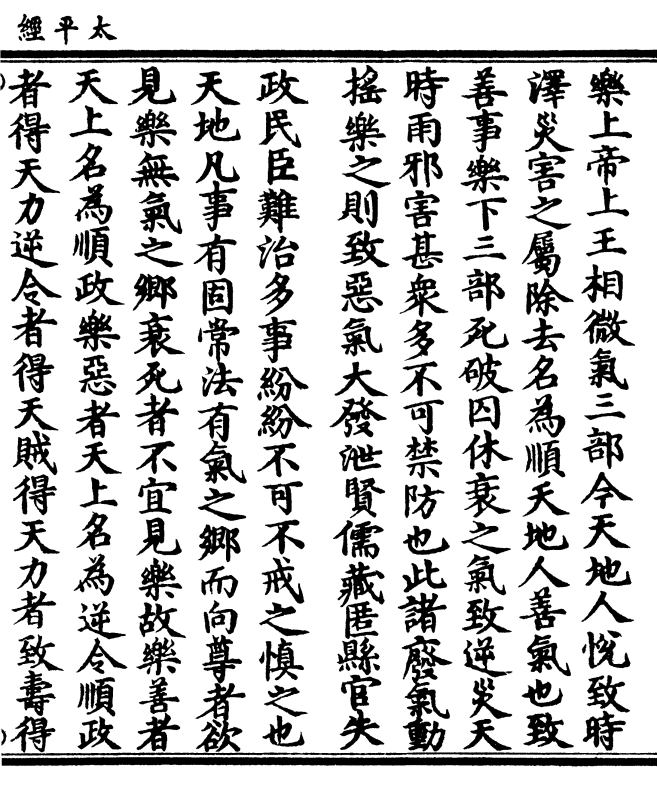 太平經
樂上帝上王相微氣三部令天地人悅致時
澤災害之屬除去名為順天地人善氣也致
善事樂下三部死破囚休衰之氣致逆災天
時雨邪害甚衆多不可禁防也此諸廢氣動
搖樂之則致惡氣大發泄賢儒藏匿縣官失
政民臣難治多事紛紛不可不戒之慎之也
天地凡事有固常法有氣之鄉而向尊者欲
見樂無氣之鄉衰死者不宜見樂故樂善者
天上名為順政樂惡者天上名為逆令順政
者得天力逆令者得天賊得天力者致壽得